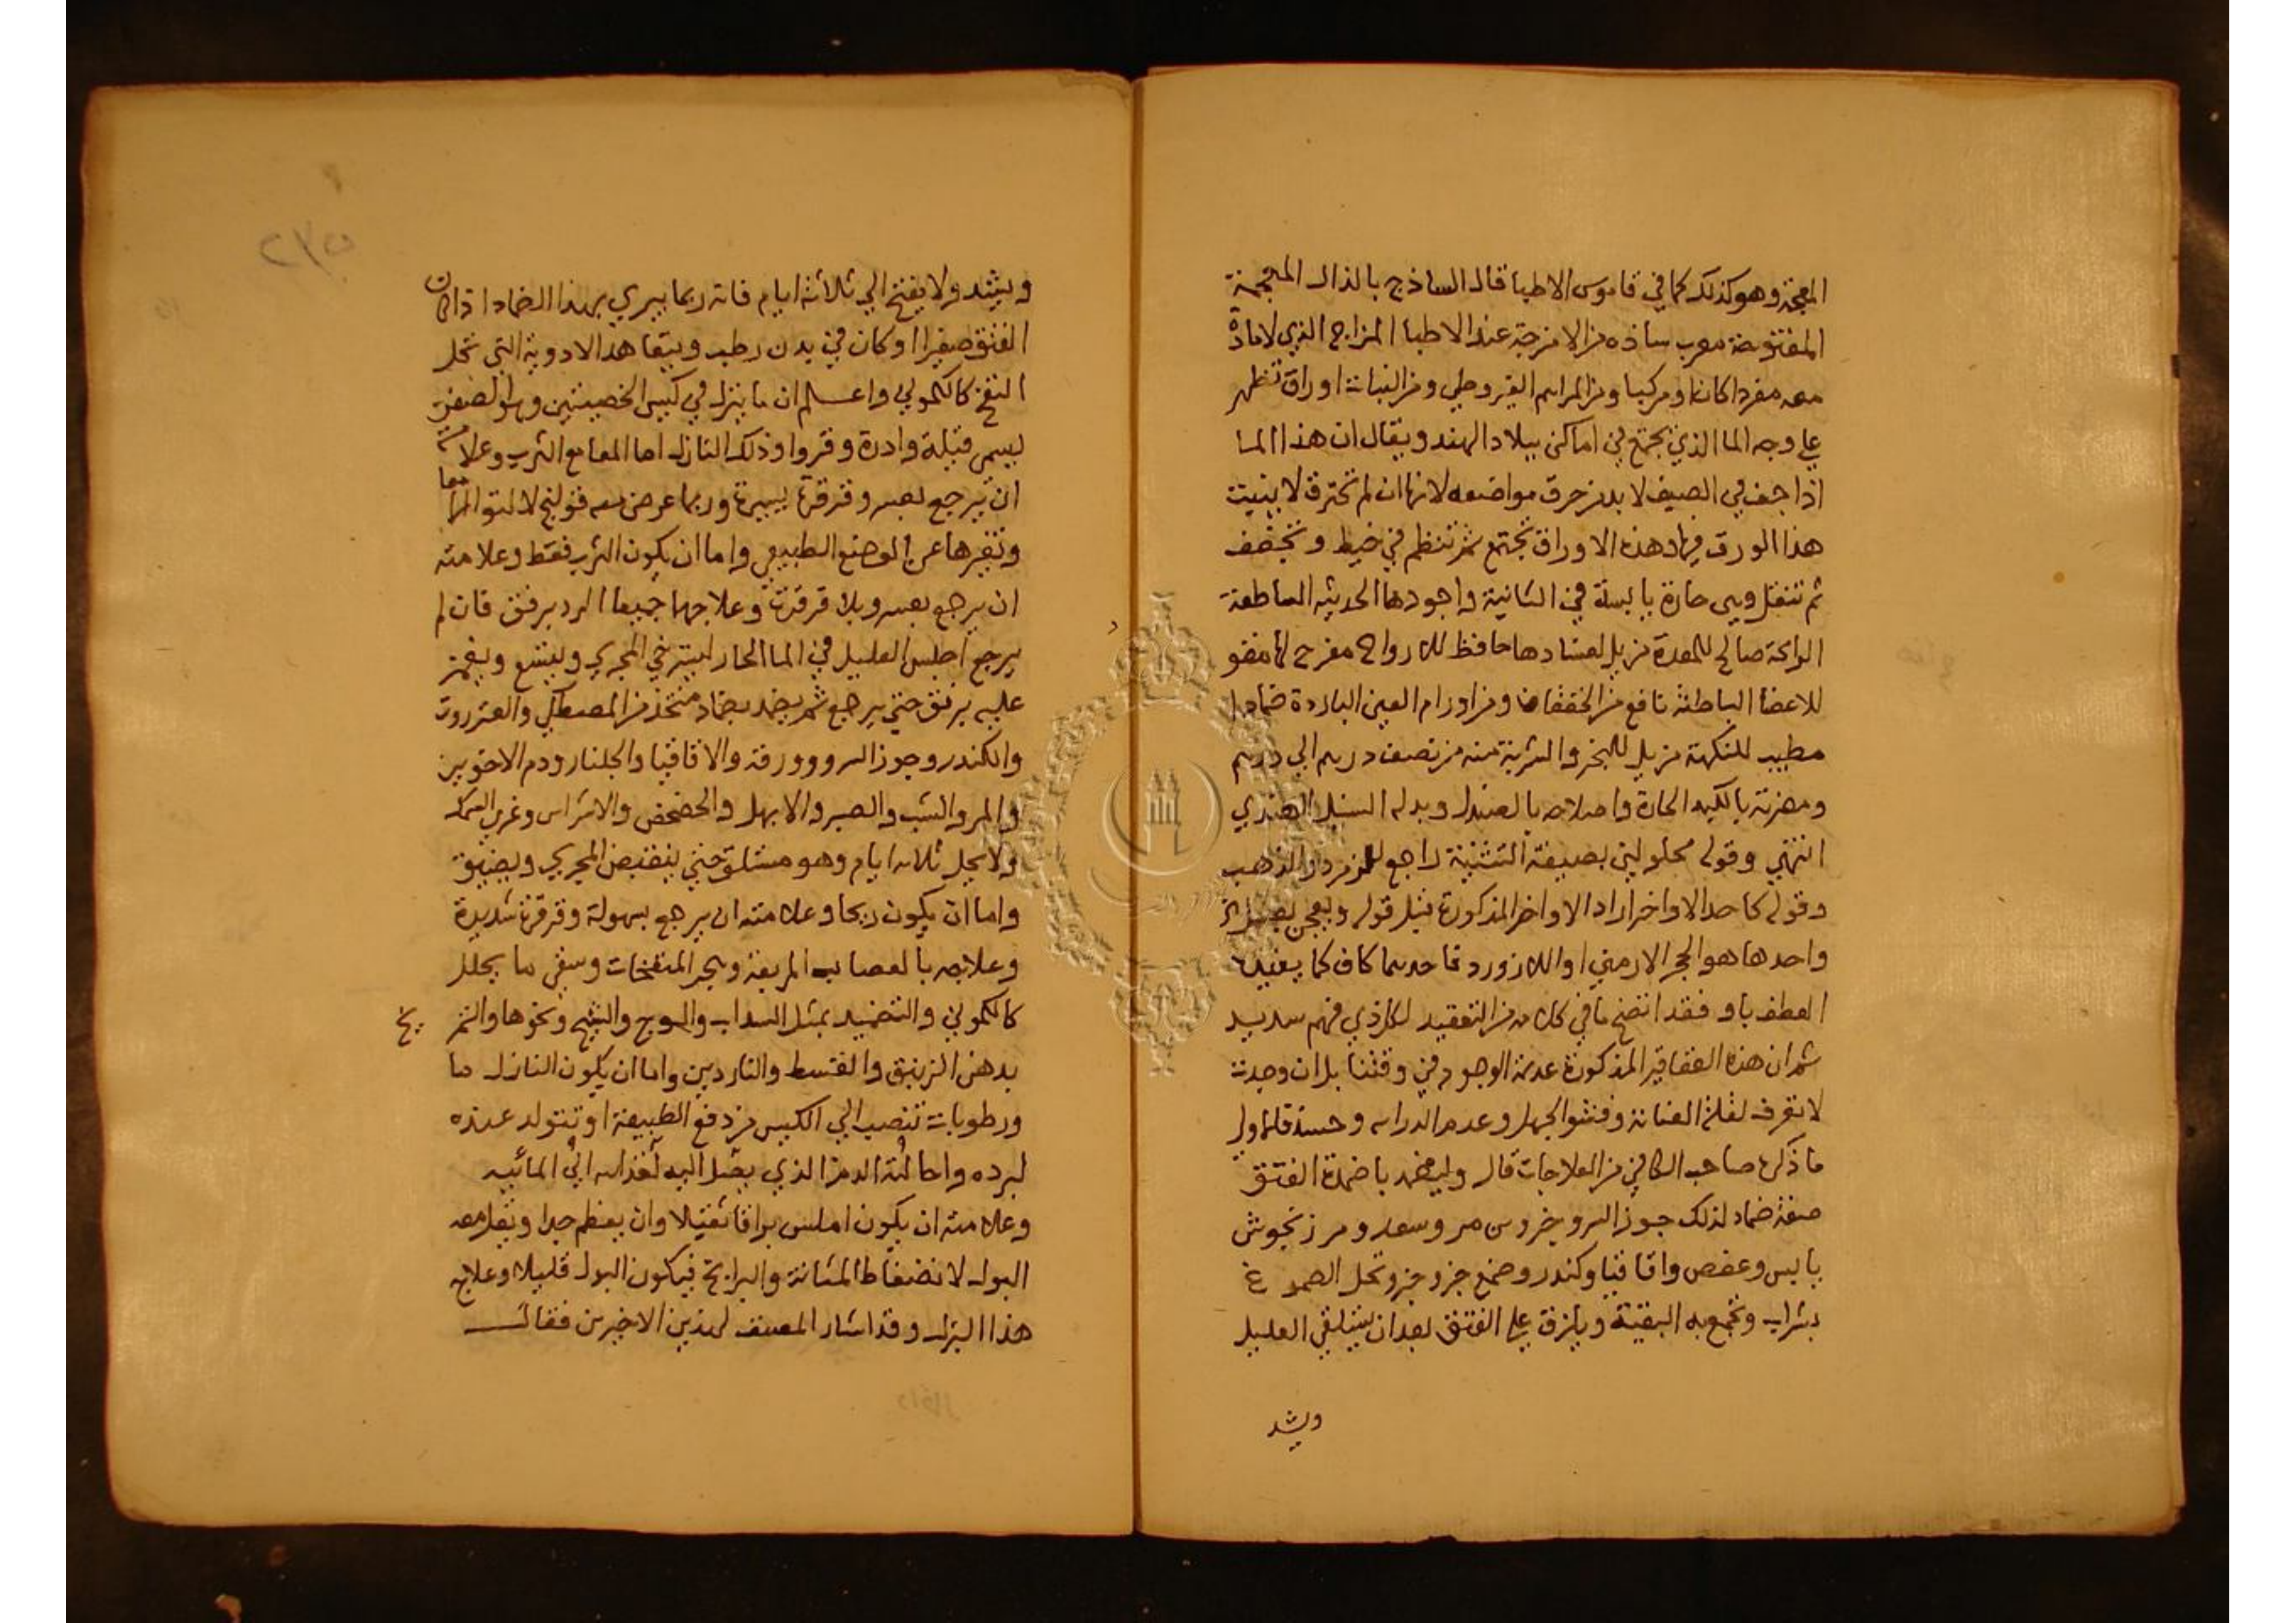 المعجمة وهو كذلك كما في قاموس الاطبا قال الساذج بالذال المعجمة
المفتوحة معرب ساذه من الامزجة عند الاطبا المزاج الذي لا مادة
معه مفردا كان او مركبا ومن المراهم القيروطي ومن النبات اوراق تظهر
علي وجه الما الذي يجتمع في اماكن ببلاد الهند ويقال ان هذا الما
اذا جف في الصيف لا بد من حرق مواضعه لانها ان لم تحترق لا ينبت
هذا الورق فيها وهذه الاوراق تجتمع ثم تنظم في خيط وتجفف
ثم تنقل وهي حارة يابسة في الثانية واجودها الحديثه الساطعة
الرائحة صالح للمعدة مزيل لفسادها حافظ للارواح مفرح لها مقو
للاعضا الباطنة نافع من الخفقان ومن اورام العين الباردة ضمادا
مطيب للنكهة مزيل للبخر والشربة منه من نصف درهم الي درهم
ومضرته بالكبد الحارة واصلاحه بالصندل وبدله السنبل الهندي
انتهي وقوله محلولين بصيغة التثنية راجع للزمرد والذهب
وقوله كاحد الاواخر اراد الاواخر المذكورة قبل قوله ويعجن بعسل
واحدها هو الحجر الارمني او اللازورد فاحدهما كاف كما يفيده
العطف باو فقد اتضح ما في كلامه من التعقيد لكل ذي فهم سديد
ثم ان هذه العقاقير المذكورة عديمة الوجود في وقتنا بل ان وجدت
لا تعرف لقلة العناية وفشو الجهل وعدم الدراسه
ما ذكره صاحب الكافي من العلاجات قال وليضمد باضمدة الفتق
صفة ضماد لذلك جوز السرو مر وسعد ومرزنجوش
يابس وعفص واقاقيا وكندر وصمغ جزو جزو تحل الصموغ
بشراب وتجمع به البقية ويلزق علي الفتق بعد ان يستلقي العليل
ويشد
٢٣٥
ويشد ولا يفتح الي ثلاثة ايام فانه ربما يبري بهذا الضماد اذا كان
الفتق صغيرا او كان في بدن رطب ويتعاهد الادوية التي تحل
النفخ كالكموني واعلم ان ما ينزل في كيس الخصيتين وهو الصفن
يسمى قيلة وادرة وقروا وذلك النازل اما المعا مع الثرب وعلامته
ان يرجع بعسر وقرقرة يسيرة وربما عرض معه قولنج لالتوا المعا
وتغيرها عن الوضع الطبيعي واما ان يكون الثرب فقط وعلامته
ان يرجع بعسر وبلا قرقرة وعلاجهما جميعا الرد برفق فان لم
يرجع اجلس العليل في الما الحار ليسترخي المجري ويتسع ويغمز
عليه برفق حتي يرجع ثم يضمد بضماد متخذ من المصطكي والعنزروت
والكندر وجوز السرو وورقه والاقاقيا والجلنار ودم الاخوين
والمر والشب والصبر والابهل والحضض والاشراس وغري السمك
ولا يحل ثلاثه ايام وهو مستلق حتي ينقبض المجري ويضيق
واما ان يكون ريحا وعلامته ان يرجع بسهولة وقرقرة شديدة
وعلاجه بالعصايب المربعة وهجر المنفخات وسقي ما يحلل
كالكموني والتضميد بمثل السداب والشيح ونحوها والتمريخ
بدهن الزنبق والقسط والناردين واما ان يكون النازل ما
ورطوبات تنصب الي الكيس من دفع الطبيعة او تتولد عنده
لبرده واحالته الدم الذي يصل اليه لغذائه الي المائيه
وعلامته ان يكون املس براقا ثقيلا وان يعظم جدا ويقل معه
البول لانضغاط المثانة والبرابخ فيكون البول قليلا وعلاج
هذا البزل وقد اشار المصنف لهذين الاخيرين فقال